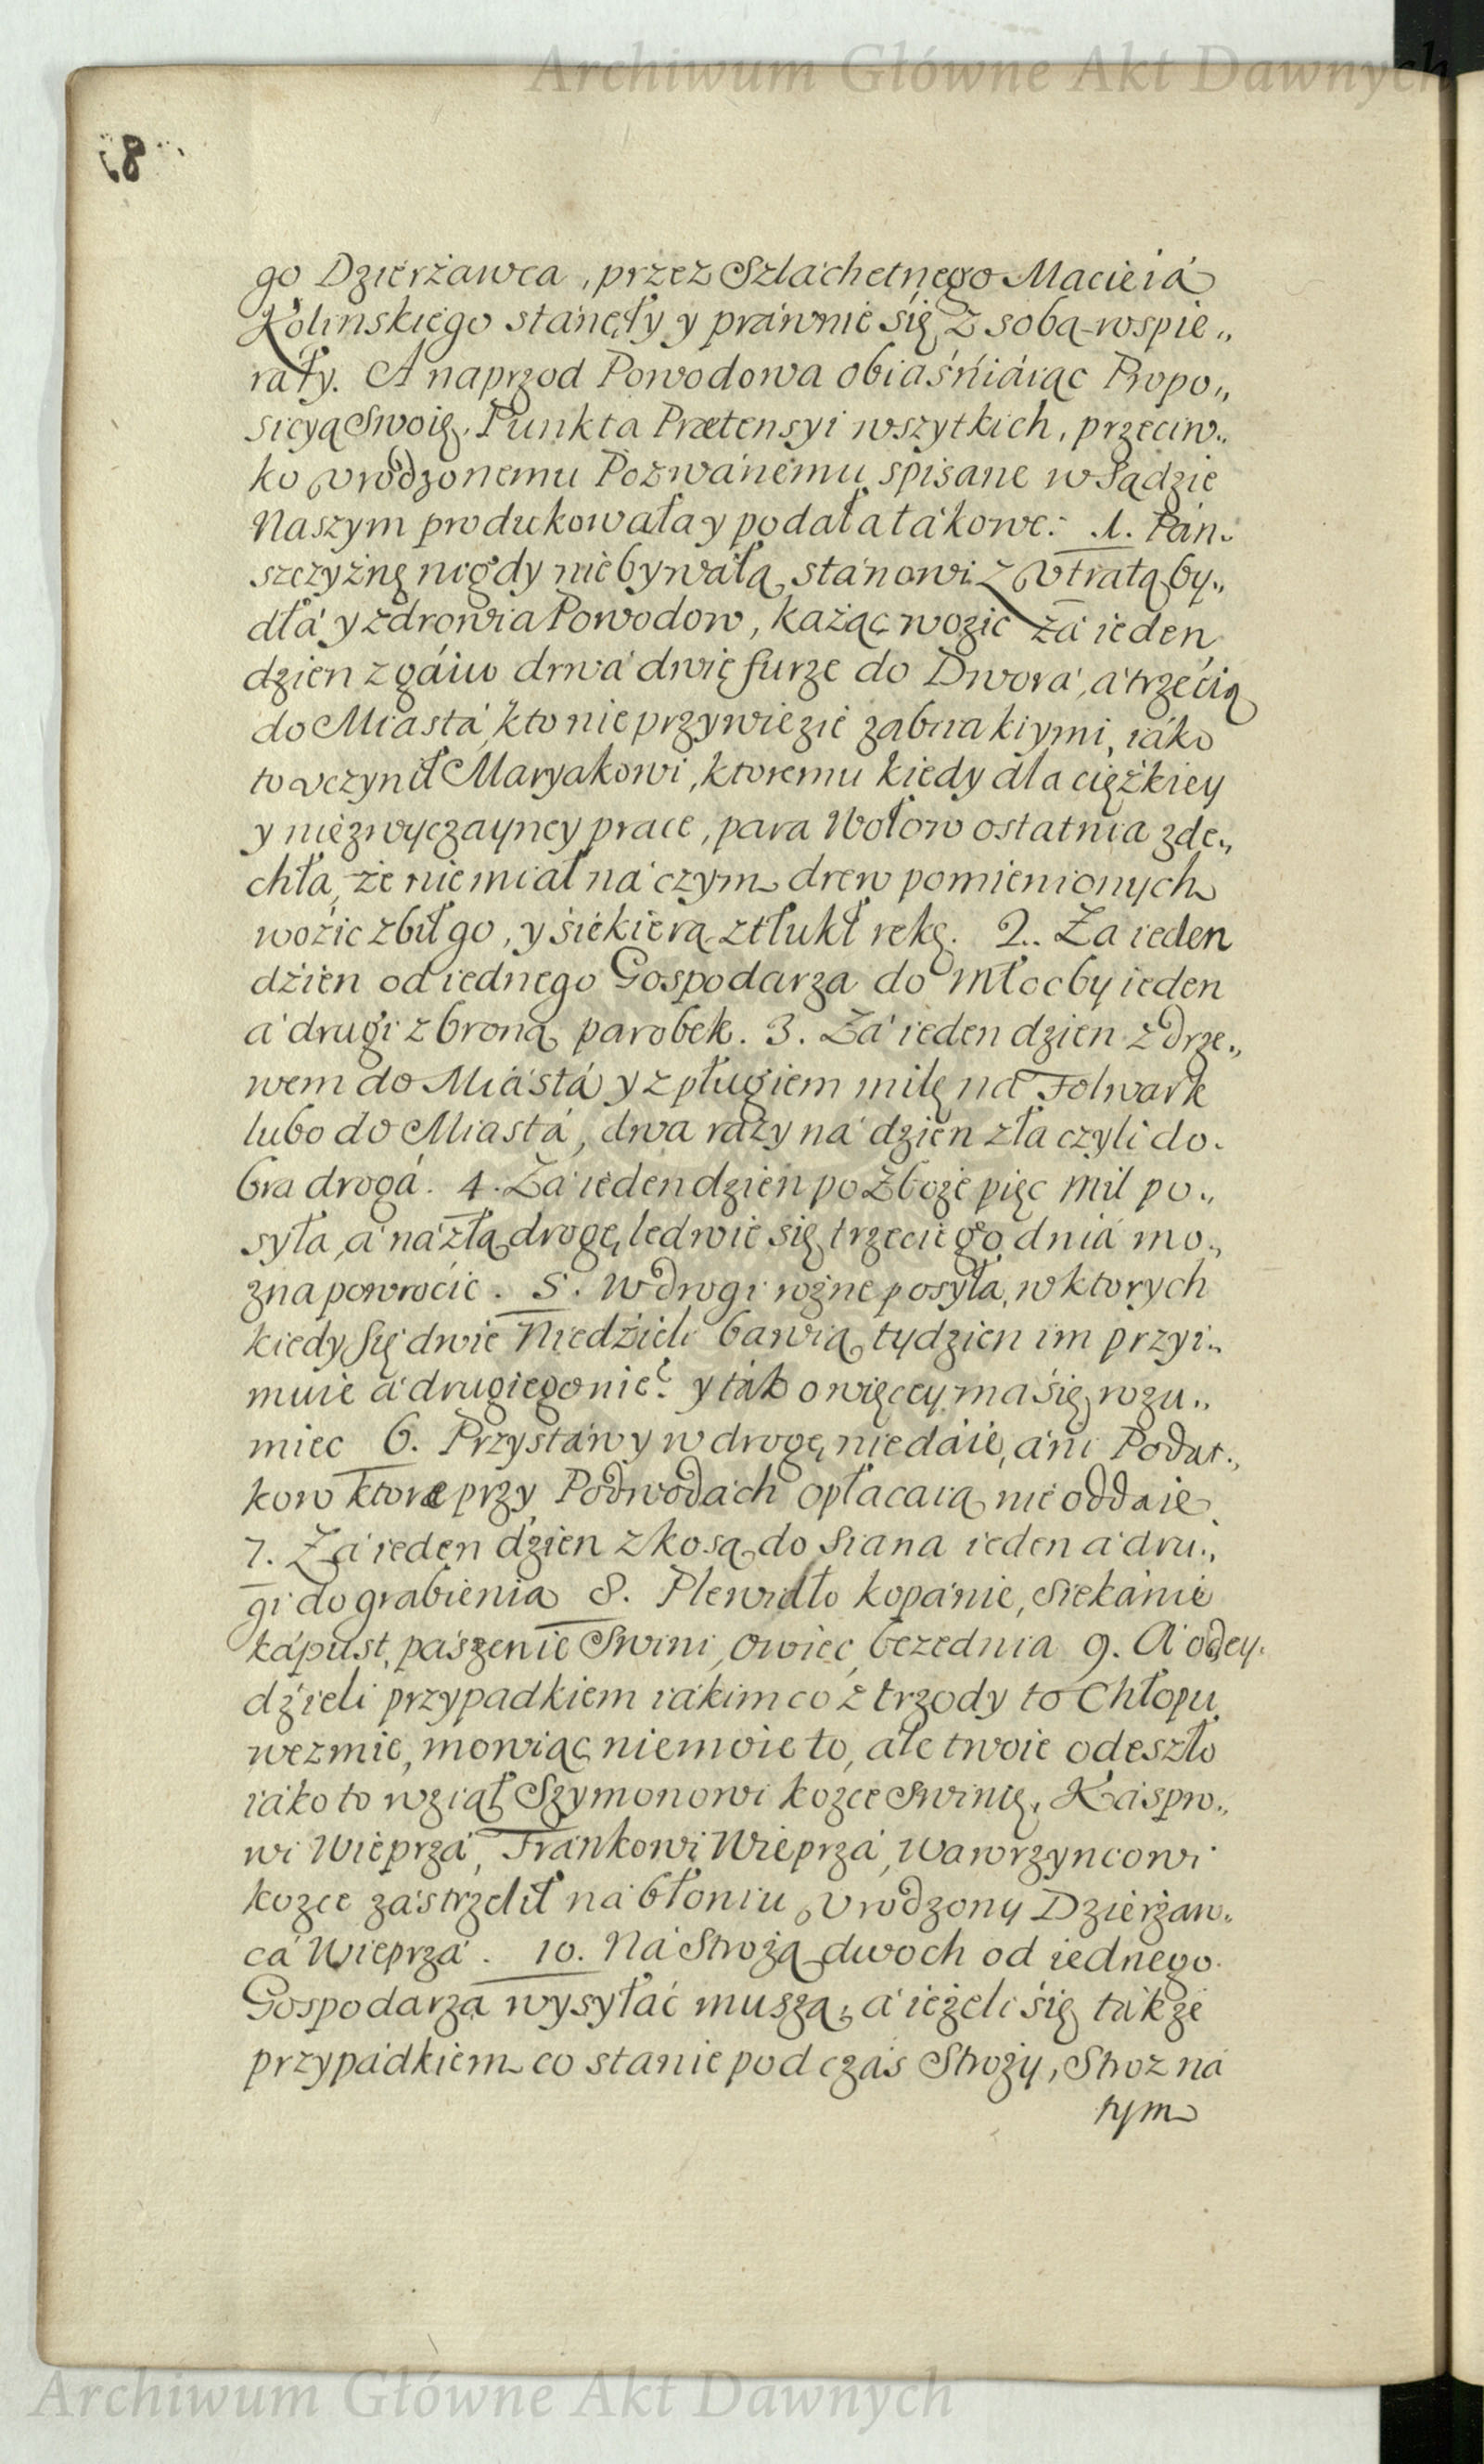 Archiwum Główne Akt Dawnych
8
go Dzierżawca, przez Szlachetnego Macieiá
Kolinskiego stánęły y práwnie się z sobą rospie„
rały. A naprzod Powodowa obiaśńiáiąc Propo„
sicyą Swoię, Punkta Prætensyi wszytkich, przeciw„
ko Vrodzonemu Pozwánemu spisane w Sądzie
Naszym produkowała y podała tákowe: 1. Pán„
szczyznę nigdy niebywałą stánowi z Vtratą by„
dłá y zdrowia Powodow, każąc wozic zá ieden
dzien z gáiu drwá dwię furze do Dworá, á trzecią
do Miastá, kto nie przywiezie zabiia kiymi, iáko
to vczynił Maryakowi, ktoremu kiedy dla cięźkiey
y niezwyczayney prace, para Wołow ostatnia zde„
chła, że nie miał ná czym drew pomienionych
woźic zbił go, y śiekierą ztłukł rękę. 2. Za ieden
dźien od iednego Gospodarza do Młocby ieden
á drugi z broną parobek. 3. Zá ieden dzien z drze„
wem do Miástá y z pługiem milę ná Folwark
lubo do Miastá, dwa razy ná dzien zła czyli do„
bra drogá. 4. Zá ieden dzien po Zboże pięc Mil po„
syła, á ná złą drogę, ledwie się trzeciego dniá mo„
zna powrocic. 5. W drogi rożne posyła, w ktorych
kiedy się dwie Niedźieli bawią, tydzien im przyi„
muie á drugiego nie? y ták o więcey ma się rozu„
miec 6. Przystáwy w drogę niedáie, áni Podat„
kow ktore przy Podwodách opłacaią nie oddaie.
7. Zá ieden dzien z kosą do Siana ieden á dru„
gi do grabienia 8. Plewidło kopánie, siekánie
kápust, pászenie Swini, Owiec, bezednia 9. A odey„
dźieli przypadkiem iákim co z trzody to Chłopu
wezmie, mowiąc nie moie to, ále twoie odeszło
iáko to wziął Szymonowi kozce Swinię, Káspro„
wi Wieprzá, Fránkowi Wieprzá, Wawrzyncowi
kozce zástrzelił ná błoniu Vrodzony Dzierżaw„
cá Wieprzá. 10. Ná Strożą dwoch od iednego
Gospodarza wysyłáć muszą, á ieżeli śię tákże
przypádkiem co stanie pod czás Stroży, Stroz ná
tym
Archiwum Główne Akt Dawnych